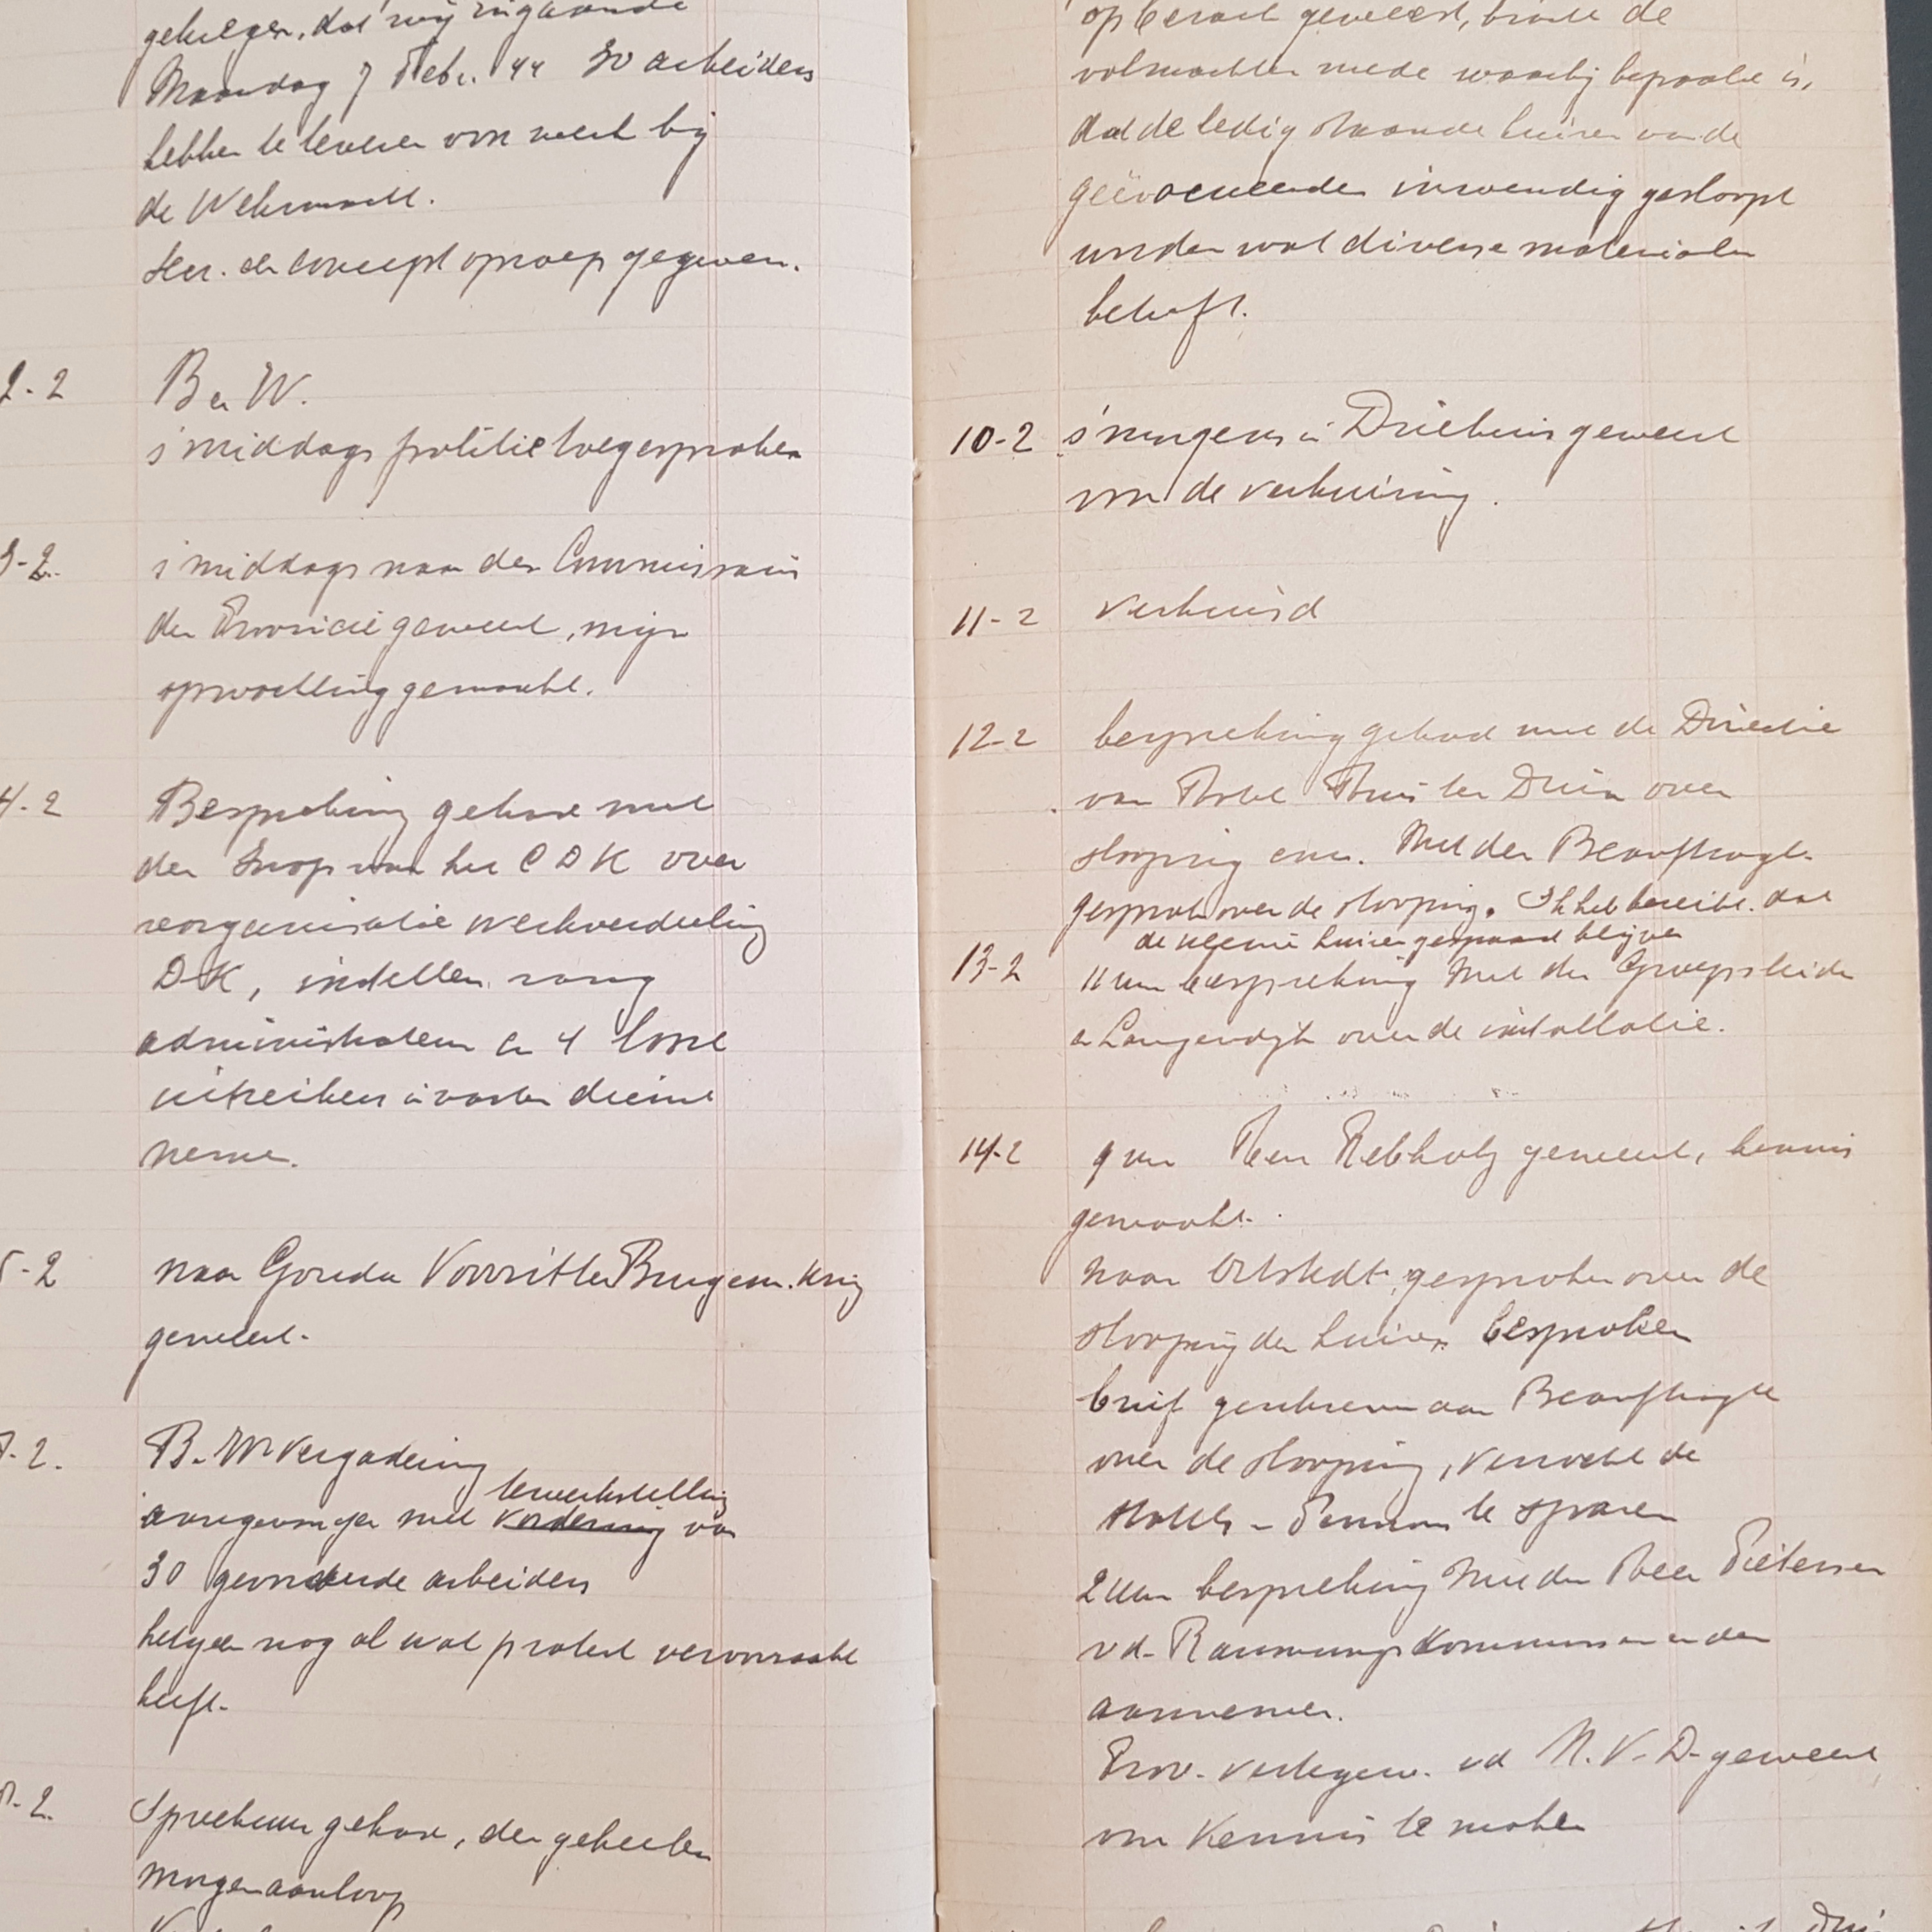 gekregen, dat wij ingaande
Maandag 7 Febr. 44 30 arbeiders
hebben te leveren voor werk bij
de Wehrmacht.
Secr. de concept oproep gegeven.
2-2 B en W.
s'middags politie toegesproken
3-2. s'middags naar den Commissaris
der Provincie geweest, mijn
opwachting gemaakt.
4-2 Bespreking gehad met
den Insp van het CDK over
reorganisatie werkverdeeling
DK, instellen rang
administrateur en 4 losse
uitreikers in vasten dienst
nemen.
5-2 naar Gouda Voorzitter Burgem. kring
geweest.
7-2. B-W vergadering
tewerkstelling
aangevangen met vordering van
30 gevorderde arbeiders
hetgeen nog al wat protest veroorzaakt
heeft.
8-2. Spreekuur gehad, den geheelen
morgen aanloop
op bezoek geweest, bracht de
volmachten mede waarbij bepaald is,
dat de ledig staande huizen van de
geëvacueerden inwendig gesloopt
worden wat diverse materialen
betreft.
10-2 s'morgens in Driehuis geweest
voor de verhuizing.
11-2 verhuisd
12-2 bespreking gehad met de Directie
van Hotel Huis ter Duin over
slooping enz. Met den Beauftragte
gesproken over de slooping. Ik heb bereikt dat
de nieuwe huizen gespaard blijven
13-2 11 uur bespreking met den Groepsleider
en Langendijk over de installatie.
14-2 9 uur Heer Rebholz geweest, kennis
gemaakt.
naar Ortskdt. gesproken over de
slooping der huizen besproken
brief geschreven aan Beauftragte
over de slooping, verzocht de
Hotels - Pensions te sparen
2 uur bespreking met den Heer Pietersen
v d- Raumungskommissar en den
aannemer.
Prov. vertegenw. vd N.V.D- geweest
om kennis te maken